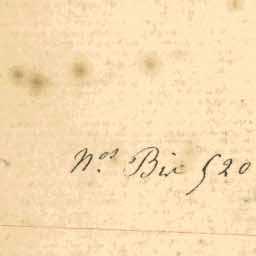 N.os Bix 520